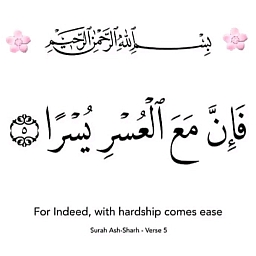 بِسْمِ اللَّهِ الرَّحْمَٰنِ الرَّحِيمِ
فَإِنَّ مَعَ ٱلْعُسْرِ يُسْرًا ٥
For Indeed, with hardship comes ease
Surah Ash-Sharh - Verse 5